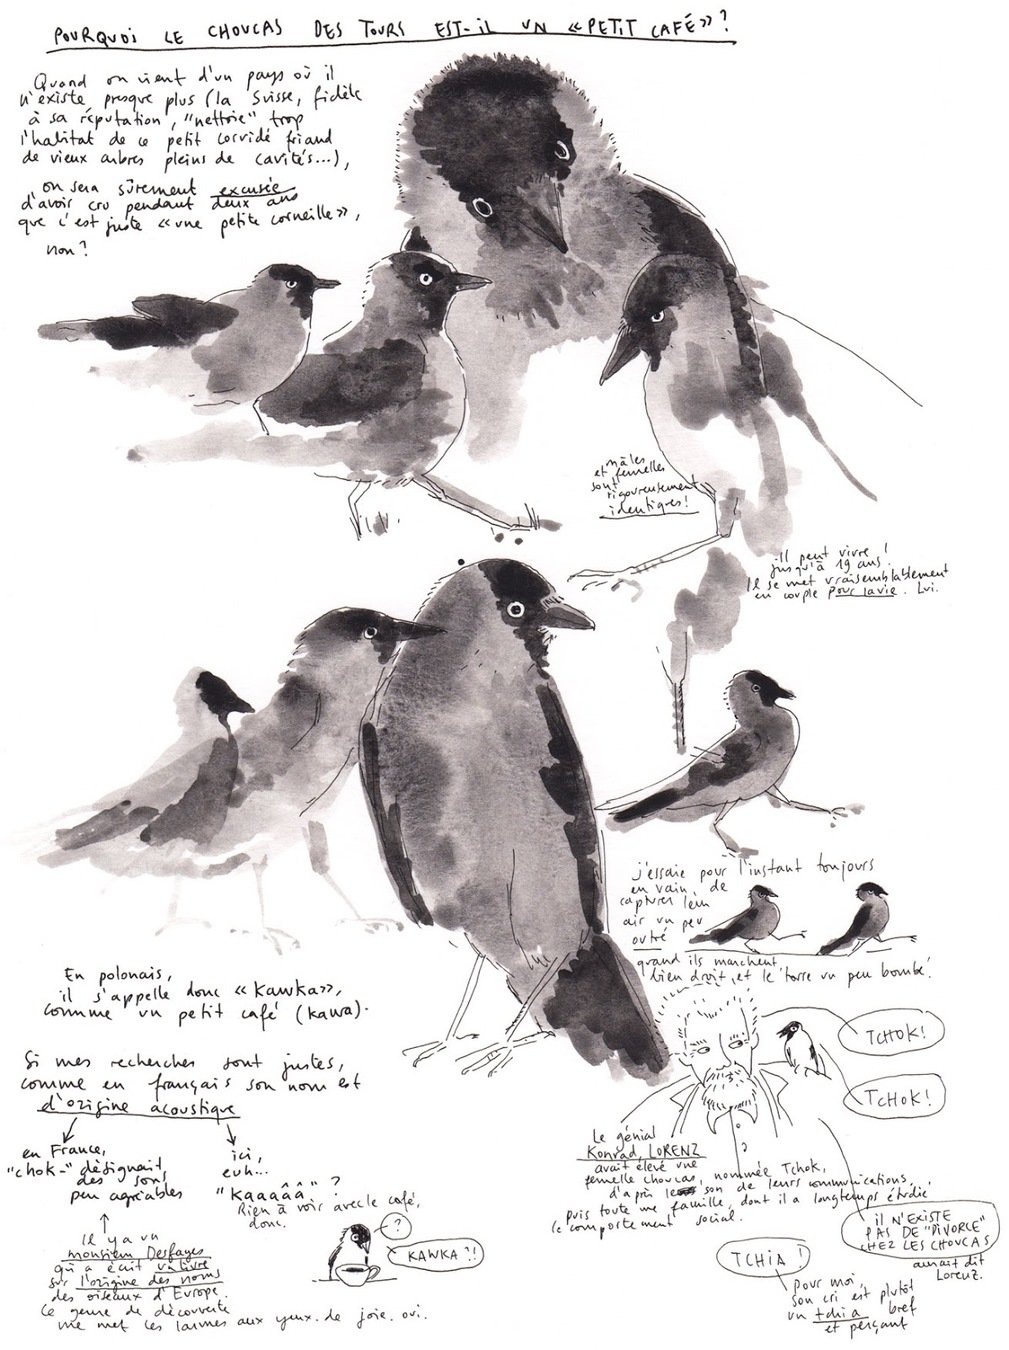 POURQUOI LE CHOUCAS DES TOURS EST-IL UN «PETIT CAFÉ»?
Quand on vient d'un pays où il
n'existe presque plus (la Suisse, fidèle
à sa réputation, "nettoie" trop
l'habitat de ce petit corvidé friand
de vieux arbres pleins de cavités...),
on sera sûrement excusée
d'avoir cru pendant deux ans
que c'est juste «une petite corneille»,
non?
mâles
et femelles
sont
rigoureusement
identiques!
Il peut vivre
jusqu'à 19 ans!
Il se met vraisemblablement
en couple pour la vie. Lui.
j'essaie pour l'instant toujours
en vain, de
capturer leur
air un peu
outré
quand ils marchent
bien droit, et le torse un peu bombé.
En polonais,
il s'appelle donc «Kawka»,
comme un petit café (kawa).
Si mes recherches sont justes,
comme en français son nom est
d'origine acoustique
en France,
"chok-" désignait
des sons
peu agréables
ici,
euh...
"Kaaaââ"?
Rien à voir avec le café,
donc.
Il y a un
monsieur Desfayes
qui a écrit un livre
sur l'origine des noms
des oiseaux d'Europe.
Ce genre de découverte
me met les larmes aux yeux. de joie. oui.
?
KAWKA?!
TCHOK!
TCHOK!
Le génial
Konrad LORENZ
avait élevé une
femelle choucas, nommée Tchok,
d'après le son de leurs communications,
puis toute une famille, dont il a longtemps étudié
le comportement social.
IL N'EXISTE
PAS DE "DIVORCE"
CHEZ LES CHOUCAS
aurait dit
Lorenz.
TCHIA!
Pour moi,
son cri est plutôt
un tchia bref
et perçant